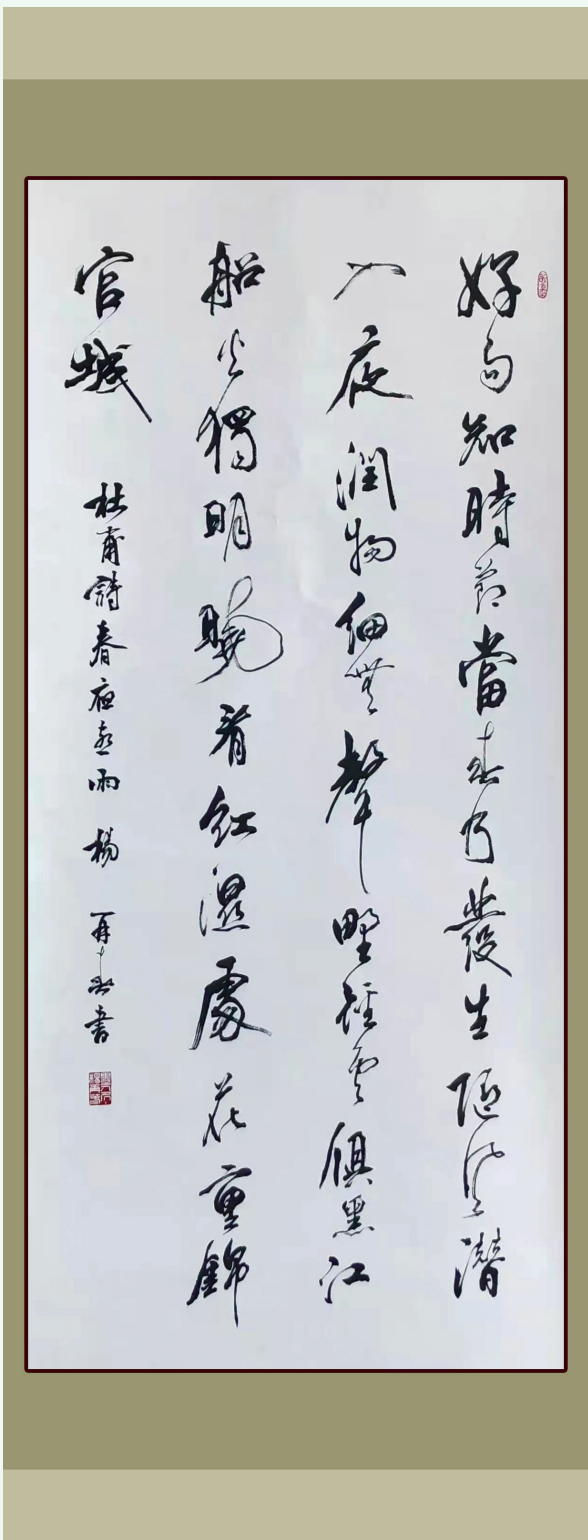 好雨知時節當春乃發生隨風潛
入夜潤物細無聲野徑雲俱黑江
船火獨明曉看紅濕處花重錦
官城
杜甫詩春夜喜雨 楊 再書